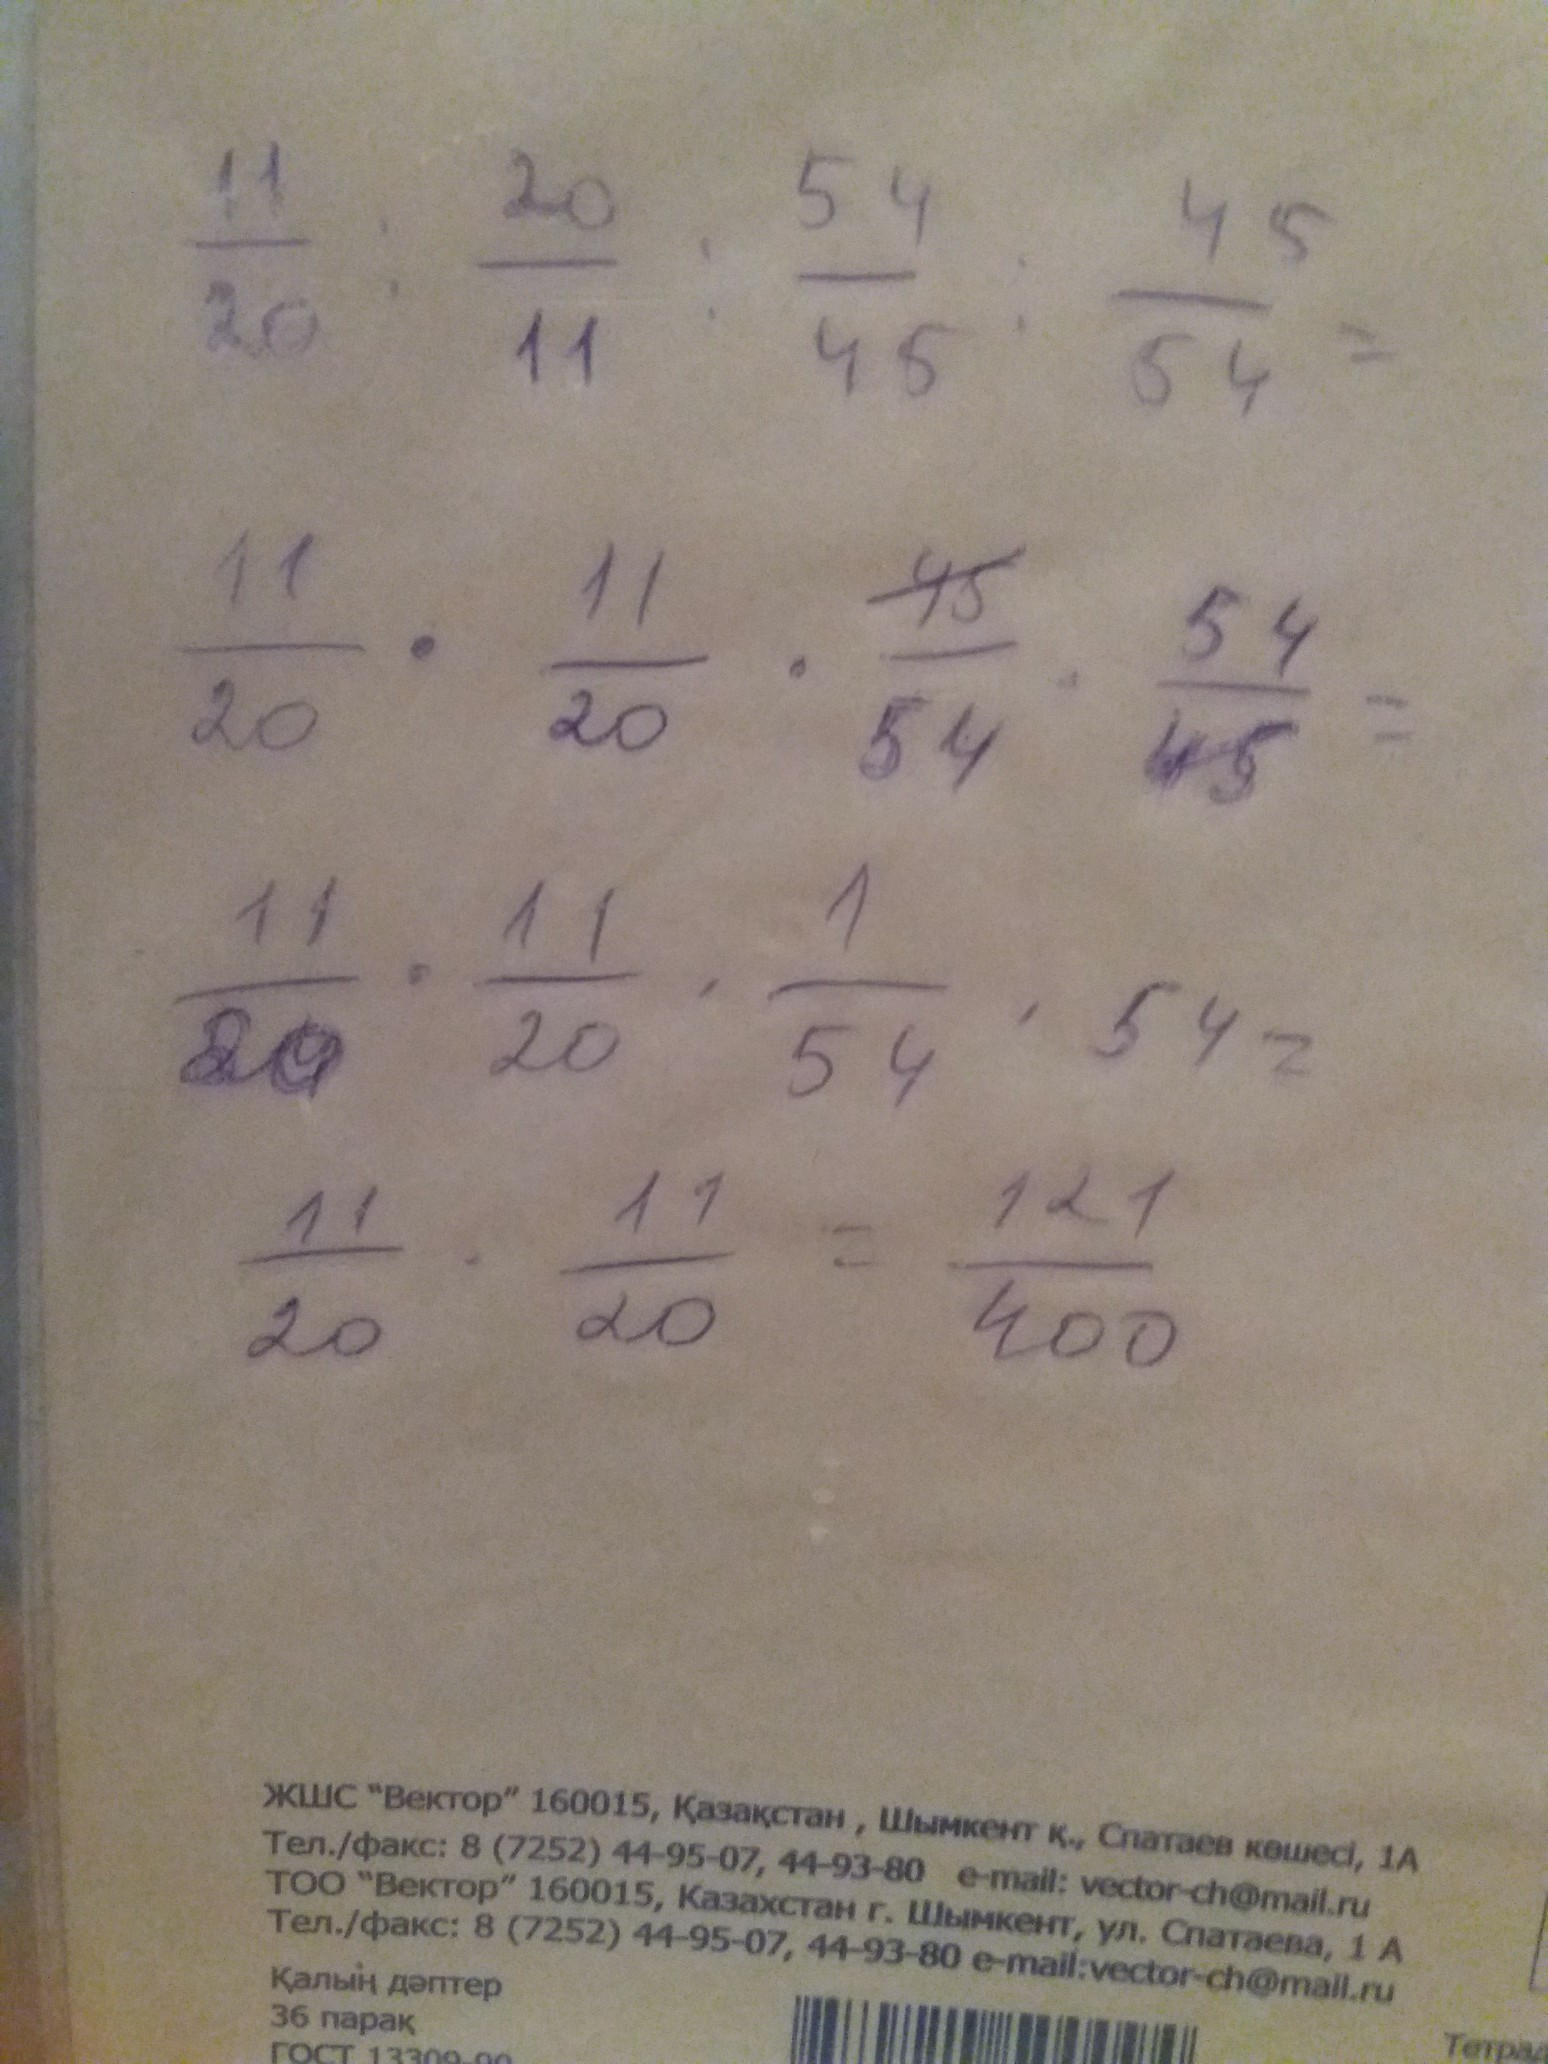 11/20 : 20/11 : 54/45 : 45/54 =
11/20 · 11/20 · 45/54 · 54/45 =
11/20 · 11/20 · 1/54 · 54 =
11/20 · 11/20 = 121/400
ЖШС “Вектор” 160015, Қазақстан , Шымкент қ., Спатаев көшесі, 1А
Тел./факс: 8 (7252) 44-95-07, 44-93-80 e-mail: vector-ch@mail.ru
ТОО “Вектор” 160015, Казахстан г. Шымкент, ул. Спатаева, 1 А
Тел./факс: 8 (7252) 44-95-07, 44-93-80 e-mail:vector-ch@mail.ru
Қалың дәптер
36 парақ
ГОСТ 13309-90